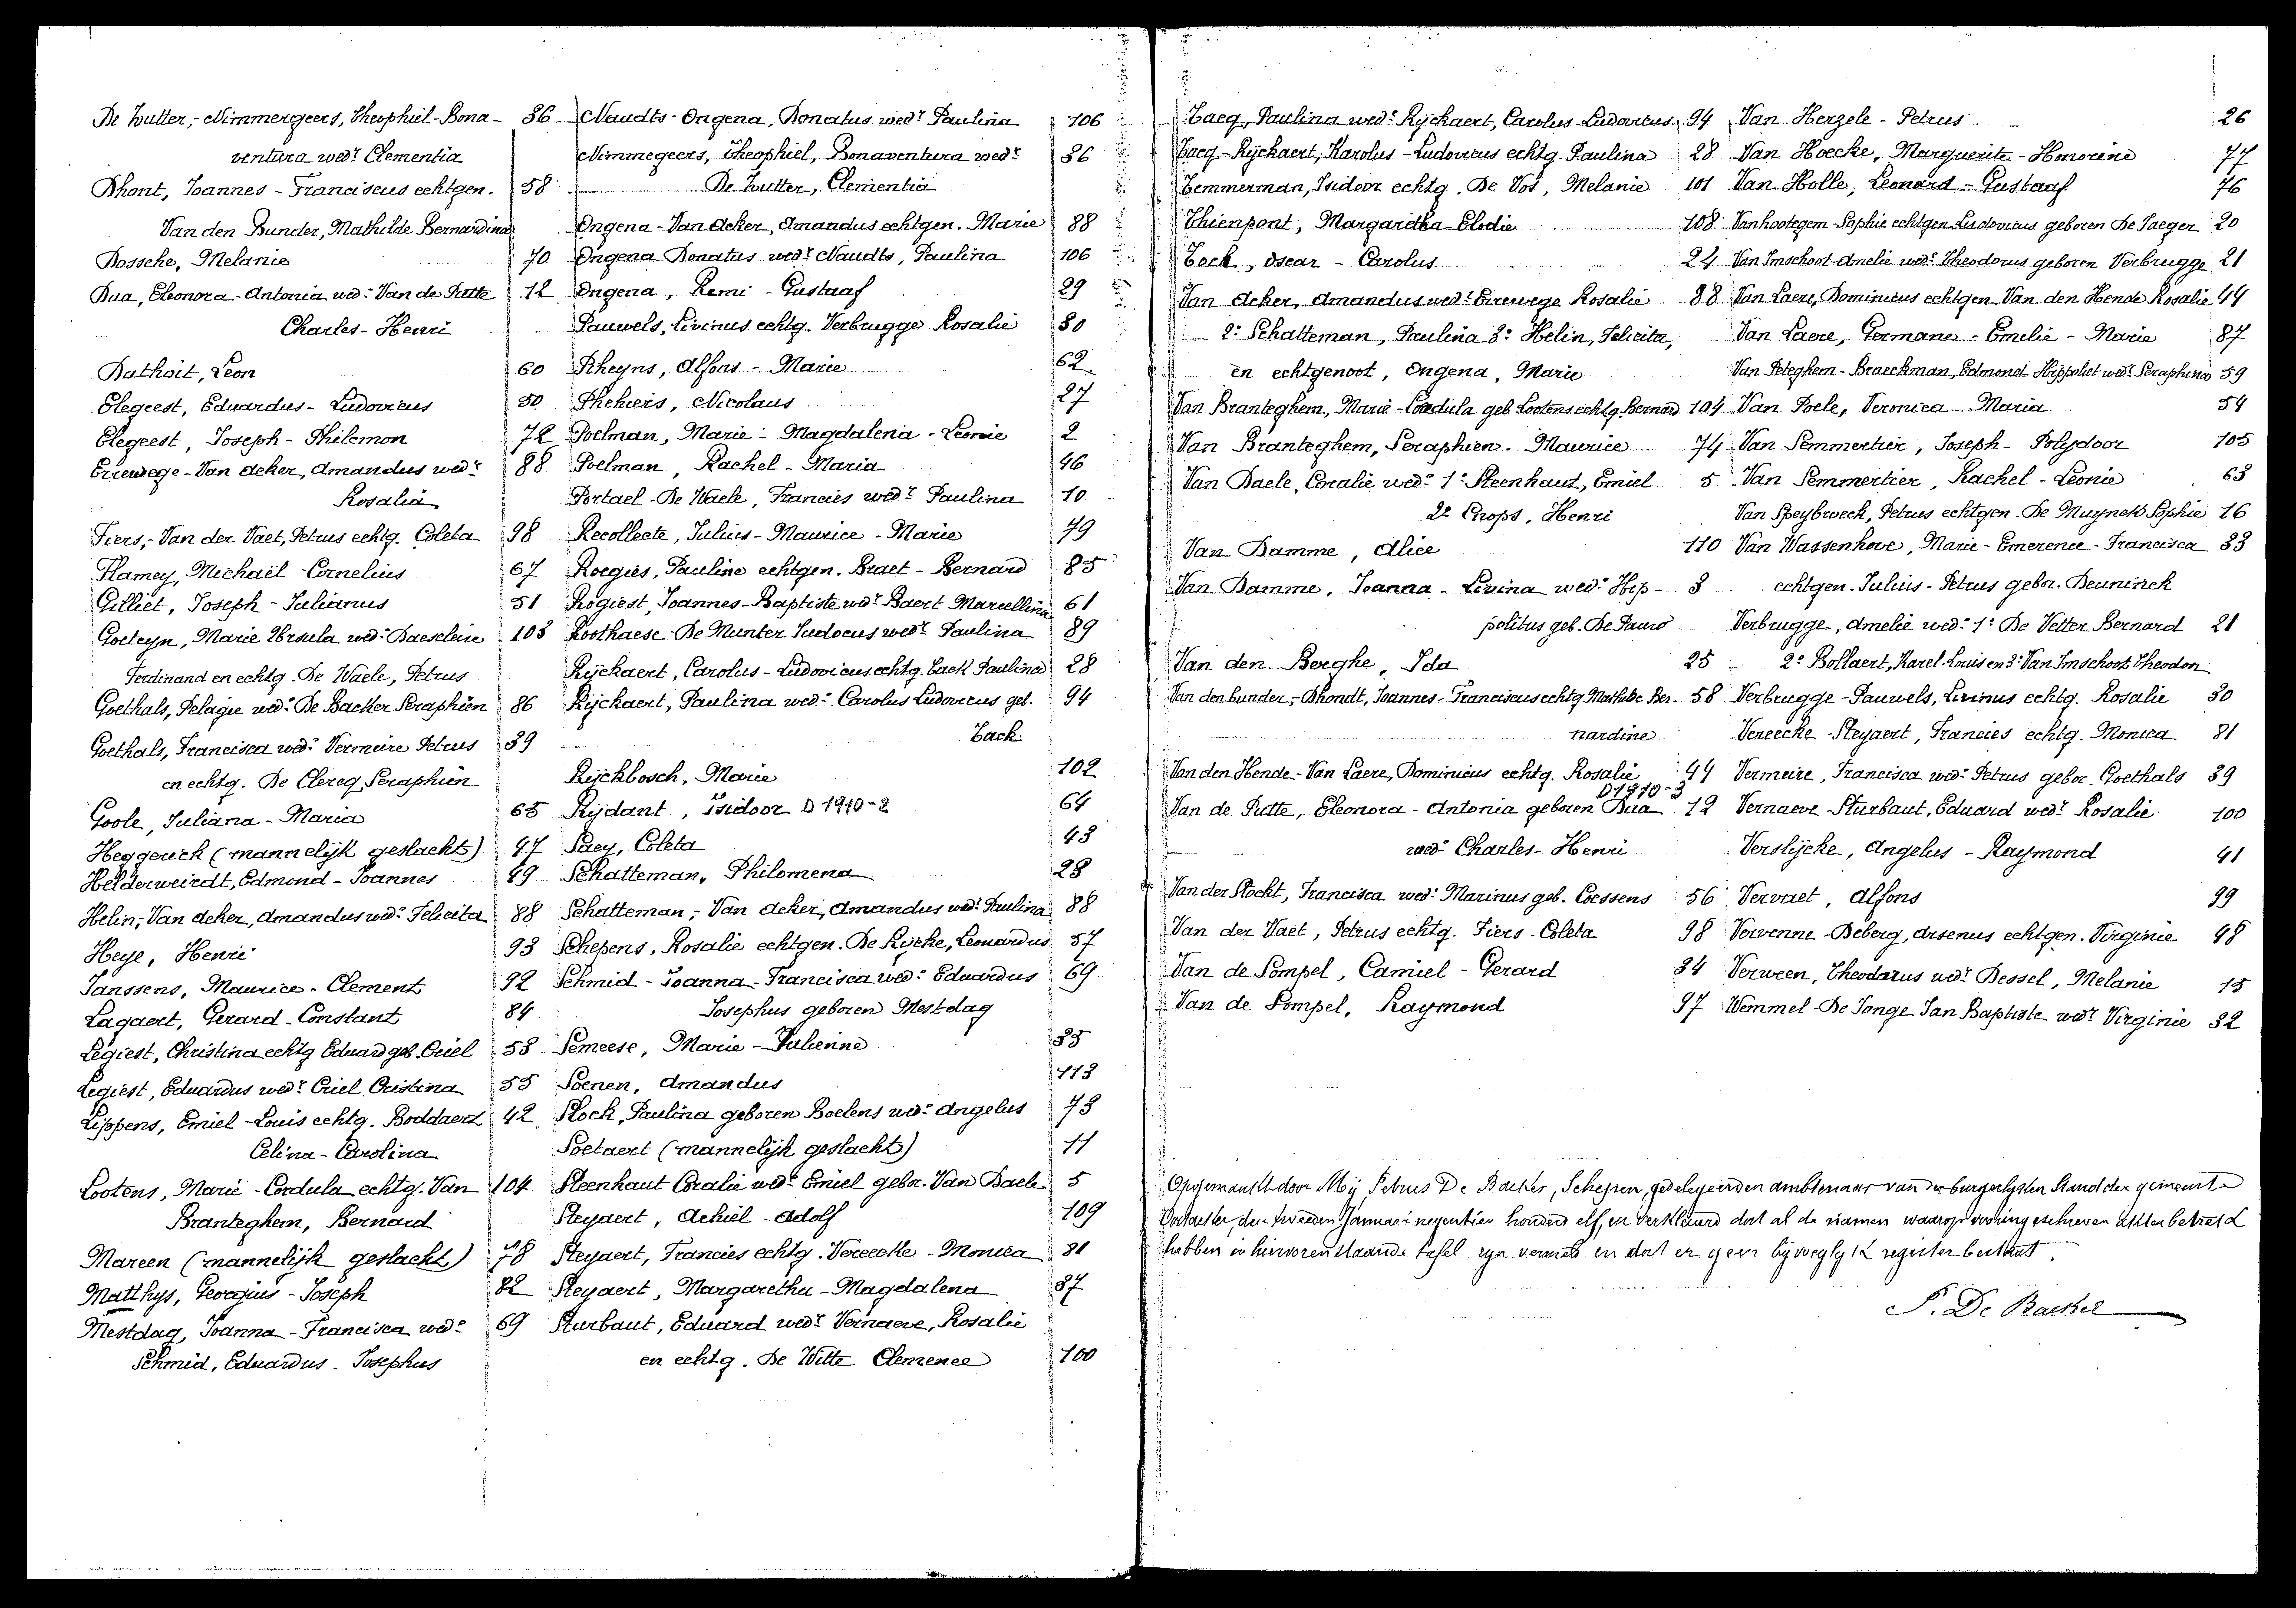 De Wutter,- Nimmergeers, Theophiel-Bona- 36
ventura wedr Clementia
Dhont, Joannes - Franciscus echtgen. 58
Van den Bunder, Mathilde Bernardina
Dossche, Melanie 70
Dua, Eleonora-Antonia wed: Van de Putte 12
Charles-Henri
Duthoit, Leon 60
Elegeest, Eduardus-Ludovicus 50
Elegeest, Joseph-Philemon 72
Errewege-Van Acker, Amandus wedr 88
Rosalia
Fiers,-Van der Vaet, Petrus echtg. Coleta 98
Flamey, Michaël-Cornelius 67
Gilliet, Joseph-Julianus 51
Goeteyn, Marie Ursula wed: Daeseleire 103
Ferdinand en echtg. De Waele, Petrus
Goethals, Pelagie wed: De Backer Seraphien 86
Goethals, Francisca wed: Vermeire Petrus 39
en echtg. De Clercq, Seraphien
Goole, Juliana-Maria 65
Heggerick (mannelijk geslacht) 47
Helderweirdt, Edmond-Joannes 49
Helin,-Van Acker, Amandus wedr Felicita 88
Heye, Henri 93
Janssens, Maurice-Clement 92
Lagaert, Gerard-Constant 84
Legiest, Christina echtg Eduard geb. Criel 53
Legiest, Eduardus wedr Criel Cristina 55
Lippens, Emiel-Louis echtg. Boddaert 42
Celina-Carolina
Lootens, Marie-Cordula echtg. Van 104
Branteghem, Bernard
Mareen (mannelijk geslacht) 78
Matthys, Georgius-Joseph 82
Mestdag, Joanna-Francisca wed: 69
Schmid, Eduardus-Josephus
Naudts-Ongena, Donatus wedr Paulina 106
Nimmegeers, Theophiel, Bonaventura wedr 36
De Wutter, Clementia
Ongena-Van Acker, Amandus echtgen. Marie 88
Ongena Donatus wedr Naudts, Paulina 106
Ongena, Remi-Gustaaf 29
Pauwels, Livinus echtg. Verbrugge Rosalie 30
Pheyns, Alfons-Marie 62
Phekeers, Nicolaus 27
Poelman, Marie-Magdalena-Leonie 2
Poelman, Rachel-Maria 46
Portael-De Waele, Francies wedr Paulina 10
Recollecte, Julius-Maurice-Marie 79
Roegies, Pauline echtgen. Braet-Bernard 85
Rogiest, Joannes-Baptiste wedr Baert Marcellina 61
Roothaese-De Munter Judocus wedr Paulina 89
Rijckaert, Carolus-Ludovicus echtg. Tack Paulina 28
Rijckaert, Paulina wed: Carolus Ludovicus geb. 94
Tack
Rijckbosch, Marie 102
Rijdant, Isidoor D 1910-2 64
Saey, Coleta 43
Schatteman, Philomena 23
Schatteman,-Van Acker, Amandus wedr Paulina 88
Schepens, Rosalie echtgen. De Rycke, Leonardus 57
Schmid-Joanna-Francisca wed: Eduardus 69
Josephus geboren Mestdag
Semeese, Marie-Julienne 35
Soenen, Amandus 113
Stock, Paulina geboren Boelens wed: Angelus 73
Soetaert (mannelijk geslacht) 11
Steenhaut Coralie wedr Emiel gebor. Van Daele 5
Steyaert, Achiel-Adolf 109
Steyaert, Francies echtg. Vereecke-Monica 81
Steyaert, Margaretha-Magdalena 37
Sturbaut, Eduard wedr Vernaeve, Rosalie
en echtg. De Witte Clemence 100
Tacq, Paulina wed: Rijckaert, Carolus-Ludovicus 94
Tacq-Rijckaert, Karolus-Ludovicus echtg. Paulina 28
Temmerman, Isidoor echtg. De Vos, Melanie 101
Thienpont, Margaritha-Elodie 108
Tock, Oscar-Carolus 24
Van Acker, Amandus wedr Errewege Rosalie 88
2: Schatteman, Paulina 3: Helin, Felicita,
en echtgenoot, Ongena, Marie
Van Branteghem, Marie-Cordula geb Lootens echtg. Bernard 104
Van Branteghem, Seraphien-Maurice 74
Van Daele, Coralie wed: 1: Steenhaut, Emiel 5
2e Crops, Henri
Van Damme, Alice 110
Van Damme, Joanna-Livina wed: Hip- 3
politus geb. De Pauw
Van den Berghe, Ida 25
Van den bunder,-Dhondt, Joannes-Franciscus echtg. Mathilde Ber- 58
nardine
Van den Hende-Van Laere, Dominicus echtg. Rosalie 44
D 1910-3
Van de Putte, Eleonora-Antonia geboren Dua 12
wed: Charles-Henri
Van der Stockt, Francisca wed: Marinus geb. Coessens 56
Van der Vaet, Petrus echtg. Fiers-Coleta 98
Van de Sompel, Camiel-Gerard 34
Van de Sompel, Raymond 97
Van Herzele-Petrus 26
Van Hoecke, Marguerite-Honorine 77
Van Holle, Leonard-Gustaaf 76
Vanhootegem-Sophie echtgen. Ludovicus geboren De Jaeger 20
Van Imschoot-Amelie wed: Theodorus geboren Verbrugge 21
Van Laere, Dominicus echtgen. Van den Hende Rosalie 44
Van Laere, Germane-Emelie-Marie 87
Van Peteghem-Braeckman, Edmond-Hippoliet wedr Seraphina 59
Van Poele, Veronica-Maria 54
Van Semmertier, Joseph-Polydoor 105
Van Semmertier, Rachel-Leonie 63
Van Speybroeck, Petrus echtgen. De Muynck Sophie 16
Van Wassenhove, Marie-Emerence-Francisca 33
echtgen. Julius-Petrus gebor. Deuninck
Verbrugge, Amelie wed: 1: De Vetter Bernard 21
2e Bollaert, Karel-Louis en 3: Van Imschoot Theodon
Verbrugge-Pauwels, Livinus echtg. Rosalie 30
Vereecke-Steyaert, Francies echtg. Monica 81
Vermeire, Francisca wed: Petrus gebor. Goethals 39
Vernaeve-Sturbaut, Eduard wedr Rosalie 100
Verslijcke, Angelus-Raymond 41
Vervaet, Alfons 99
Vervenne-Deberg, Arsenus echtgen. Virginie 48
Verween, Theodorus wedr Dessel, Melanie 15
Wemmel-De Jonge Jan Baptiste wedr Virginie 32
Opgemaakt door Mij Petrus De Backer, Schepen, gedelegeerden ambtenaar van den burgerlijken Stand der gemeente
den tweeden Januari negentien honderd elf, en verklaard dat al de namen waarop ingeschreven akten betrek
hebben in hiervorenstaande tafel zijn vermeld en dat er geen bijvoeglijk register bestaat.
P. De Backer